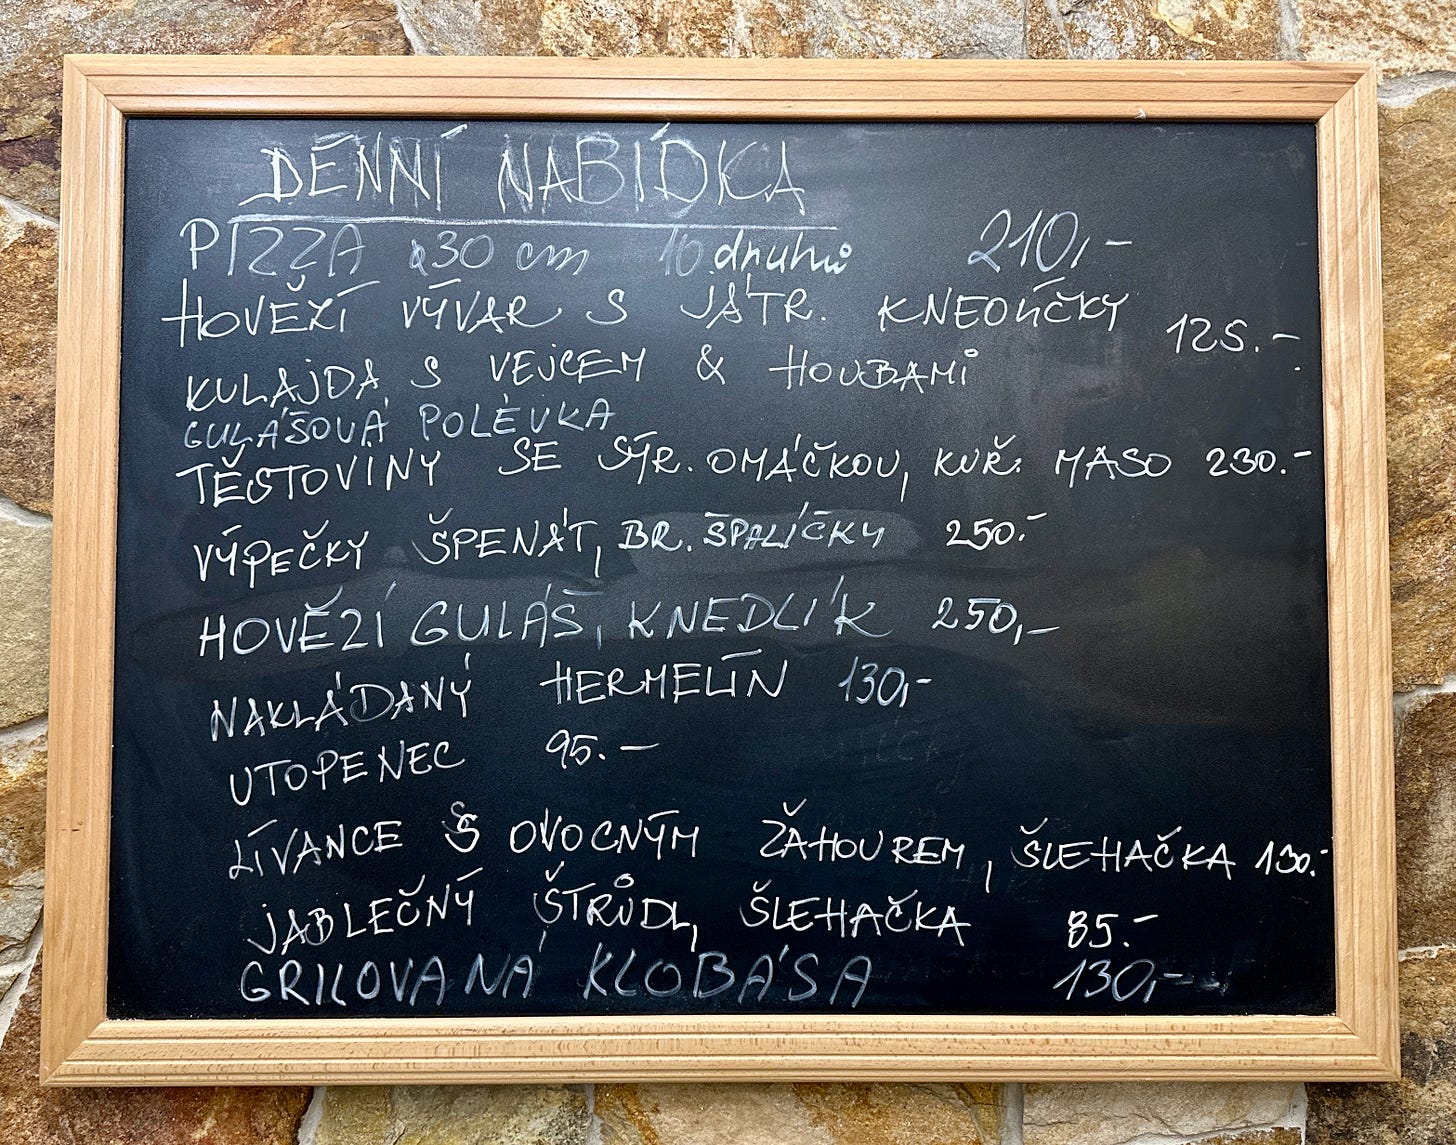 DENNÍ NABÍDKA
PIZZA ⌀30 cm 10 druhů 210,-
HOVĚZÍ VÝVAR S JÁTR. KNEDLÍČKY 125.-
KULAJDA S VEJCEM & HOUBAMI
GULÁŠOVÁ POLÉVKA
TĚSTOVINY SE SÝR. OMÁČKOU, KUŘ. MASO 230.-
VÝPEČKY ŠPENÁT, BR. ŠPALÍČKY 250.-
HOVĚZÍ GULÁŠ, KNEDLÍK 250,-
NAKLÁDANÝ HERMELÍN 130,-
UTOPENEC 95.-
LÍVANCE S OVOCNÝM ŽAHOUREM, ŠLEHAČKA 130.-
JABLEČNÝ ŠTRŮDL, ŠLEHAČKA 85.-
GRILOVANÁ KLOBÁSA 130,-